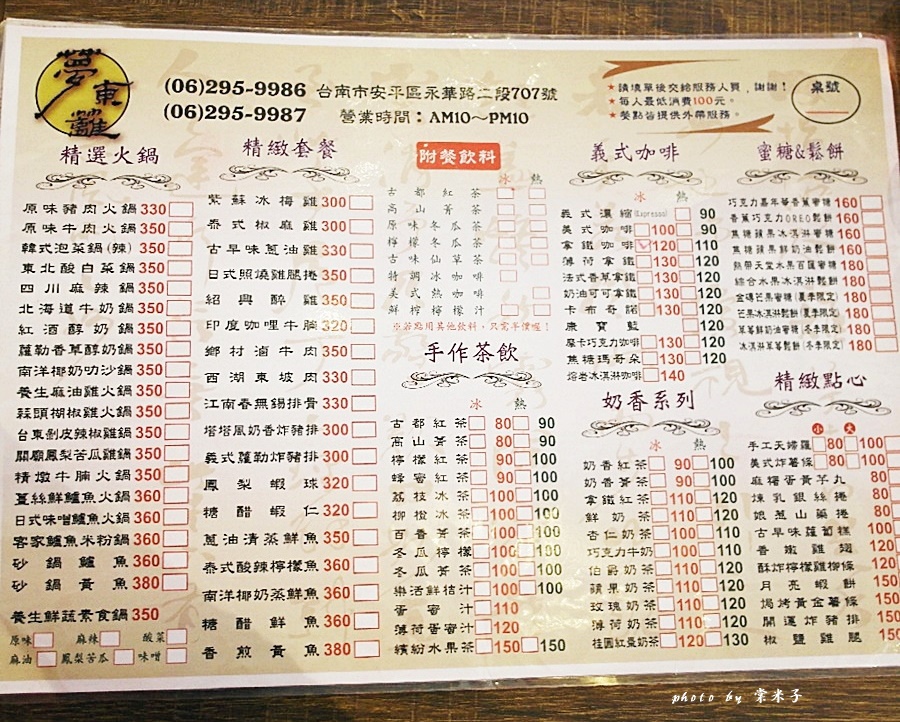 夢東籬
(06)295-9986
(06)295-9987
台南市安平區永華路二段707號
營業時間：AM10～PM10
★請填單後交給服務人員，謝謝！
★每人最低消費100元。
★餐點皆提供外帶服務。
桌號
精選火鍋
原味豬肉火鍋 330
原味牛肉火鍋 350
韓式泡菜鍋(辣) 350
東北酸白菜鍋 350
四川麻辣鍋 350
北海道牛奶鍋 350
紅酒醇奶鍋 350
蘿勒香草醇奶鍋 350
南洋椰奶叻沙鍋 350
養生麻油雞火鍋 350
蒜頭胡椒雞火鍋 350
台東剝皮辣椒雞鍋 350
關廟鳳梨苦瓜雞鍋 350
精燉牛腩火鍋 350
薑絲鮮鱸魚火鍋 360
日式味噌鱸魚火鍋 360
客家鱸魚米粉鍋 360
砂鍋鱸魚 360
砂鍋黃魚 380
養生鮮蔬素食鍋 350
原味 麻辣 酸菜
麻油 鳳梨苦瓜 味噌
精緻套餐
紫蘇冰梅雞 300
泰式椒麻雞 300
古早味蔥油雞 300
日式照燒雞腿捲 350
紹興醉雞 300
印度咖哩牛腩 320
鄉村滷牛肉 350
西湖東坡肉 330
江南香無錫排骨 330
塔塔風奶香炸豬排 300
義式蘿勒炸豬排 300
鳳梨蝦球 320
糖醋蝦仁 320
蔥油清蒸鮮魚 350
泰式酸辣檸檬魚 360
南洋椰奶蒸鮮魚 360
糖醋鮮魚 360
香煎黃魚 380
附餐飲料
冰 熱
古都紅茶
高山菁茶
原味冬瓜茶
檸檬冬瓜茶
古味仙草茶
特調冰咖啡
美式熱咖啡
鮮榨檸檬汁
※若點用其他飲料，只需半價喔！
手作茶飲
冰 熱
古都紅茶 80 90
高山菁茶 80 90
檸檬紅茶 90 100
蜂蜜紅茶 90 100
荔枝冰茶 100 100
柳橙冰茶 100 100
百香菁茶 100 100
冬瓜檸檬 100 100
冬瓜菁茶 100 100
樂活鮮桔汁 100 100
蛋蜜汁 110
薄荷蛋蜜汁 120
繽紛水果茶 150 150
義式咖啡
冰 熱
義式濃縮(Espresso) 90
美式咖啡 100 90
拿鐵咖啡 120 110
薄荷拿鐵 130 120
法式香草拿鐵 130 120
奶油可可拿鐵 130 120
卡布奇諾 130 120
康寶藍 120
摩卡巧克力咖啡 130 120
焦糖瑪奇朵 130 120
熔岩冰淇淋咖啡 140
奶香系列
冰 熱
奶香紅茶 90 100
奶香菁茶 90 100
拿鐵紅茶 110 120
鮮奶茶 110 120
杏仁奶茶 100 110
巧克力牛奶 100 110
伯爵奶茶 110 120
蘋果奶茶 110 120
玫瑰奶茶 110 120
桂圓紅棗奶茶 120 130
蜜糖&鬆餅
巧克力嘉年華香蕉蜜糖 160
香蕉巧克力OREO鬆餅 160
焦糖蘋果冰淇淋蜜糖 160
焦糖蘋果鮮奶油鬆餅 160
熱帶天堂水果百匯蜜糖 180
綜合水果冰淇淋鬆餅 180
金磚芒果蜜糖(夏季限定) 180
芒果冰淇淋鬆餅(夏季限定) 180
草莓鮮奶油蜜糖(冬季限定) 180
冰淇淋草莓鬆餅(冬季限定) 180
精緻點心
小 大
手工天婦羅 80 100
美式炸薯條 80 100
麻糬蛋黃芋丸 80
煉乳銀絲捲 80
娘惹山藥捲 80
古早味蘿蔔糕 100
香嫩雞翅 120
酥炸檸檬雞柳條 120
月亮蝦餅 150
焗烤黃金薯條 150
開運炸豬排 150
椒鹽雞腿 150
photo by 棠米子